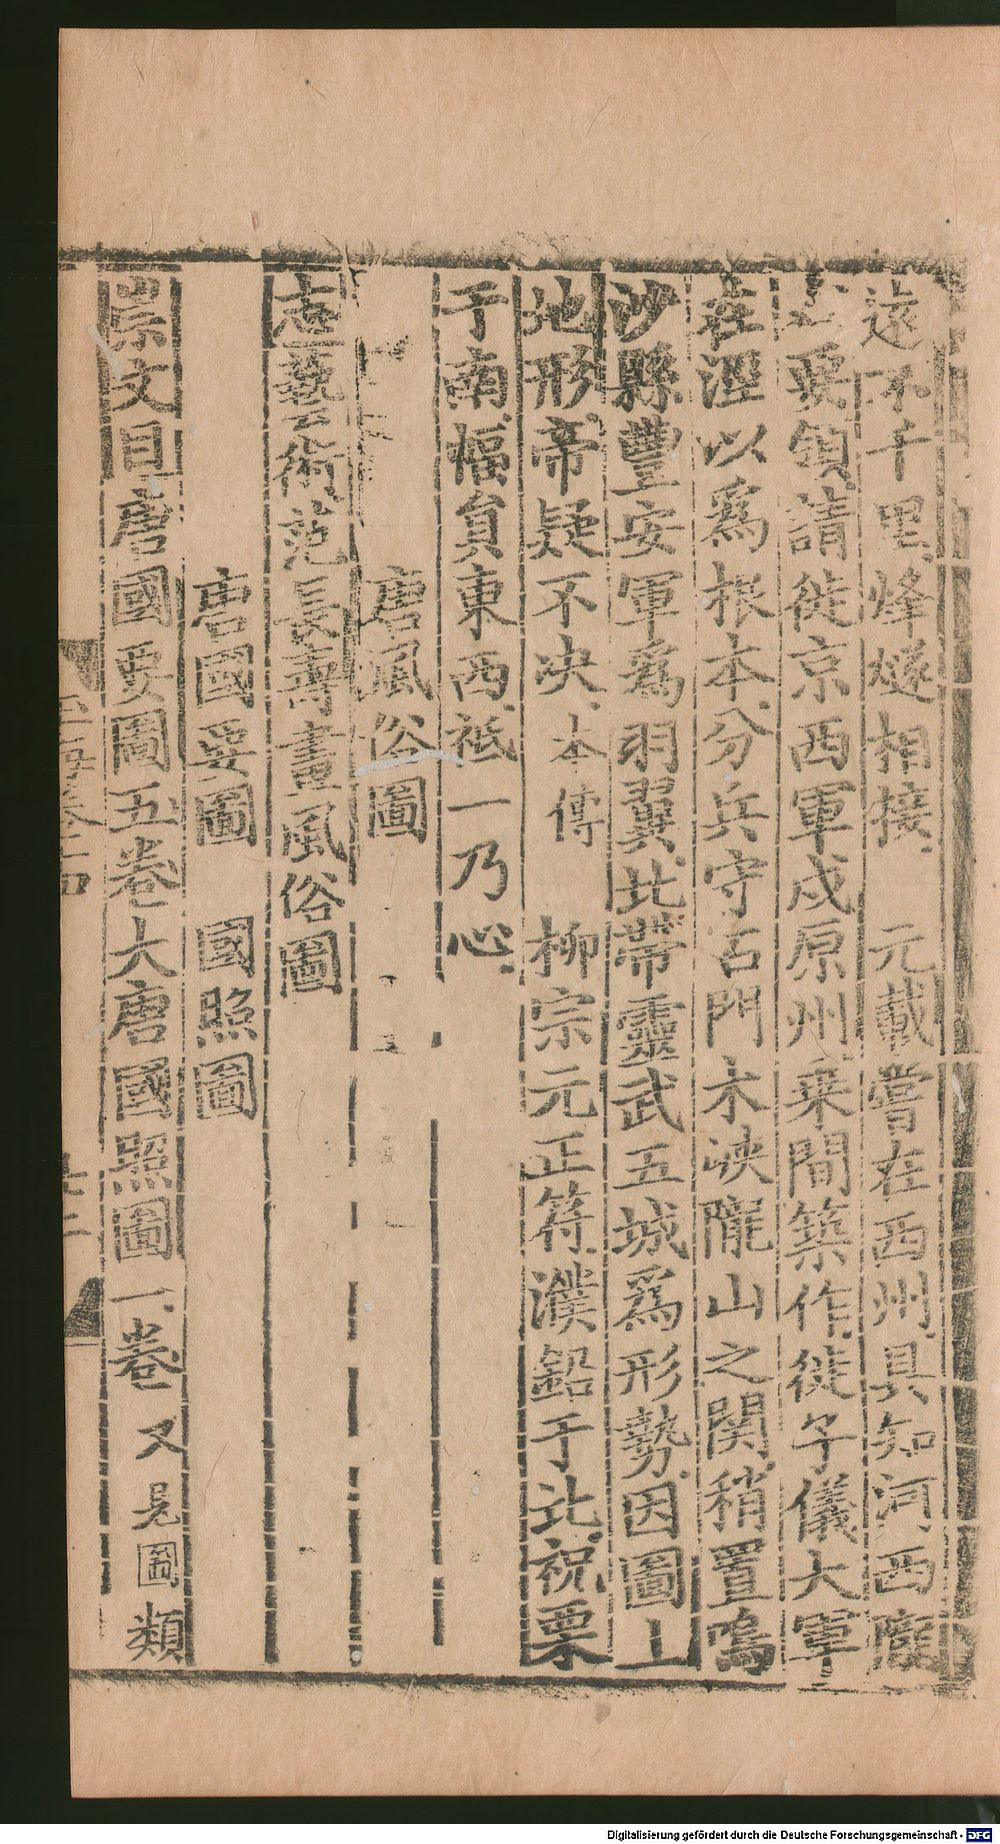 遠不千里烽燧相接 元載嘗在西州具知河西隴
要領請徙京西軍戍原州乗間築作徙子儀大軍
在涇以爲根本分兵守石門木峽隴山之関稍置鳴
沙縣豐安軍爲羽翼北帶靈武五城爲形勢因圖山
地形帝疑不决本傳 柳宗元正符濮鈆于北祝栗
于南幅員東西祗一乃心
唐風俗圖
志藝術范長壽畫風俗圖
唐國要圖 國照圖
崇文目唐國要圖五卷大唐國照圖一卷又見圖類
Digitalisierung gefördert durch die Deutsche Forschungsgemeinschaft - DFG